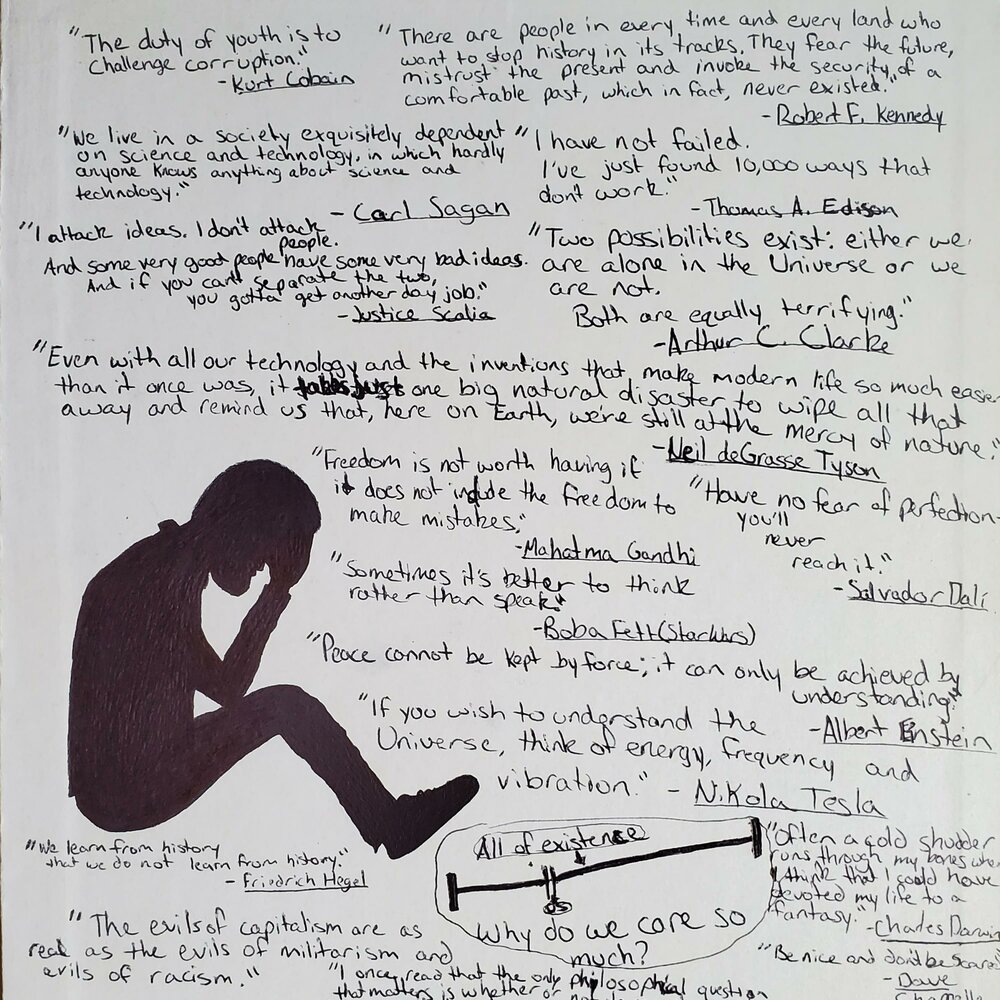 "The duty of youth is to
Challenge corruption."
- Kurt Cobain
"There are people in every time and every land who
want to stop history in its tracks. They fear the future,
mistrust the present and invoke the security of a
comfortable past, which in fact, never existed."
- Robert F. Kennedy
"We live in a society exquisitely dependent
on science and technology, in which hardly
anyone knows anything about science and
technology."
- Carl Sagan
"I have not failed.
I've just found 10,000 ways that
don't work."
- Thomas A. Edison
"I attack ideas. I don't attack
people.
And some very good people have some very bad ideas.
And if you can't separate the two,
you gotta get another day job."
- Justice Scalia
"Two possibilities exist: either we
are alone in the Universe or we
are not.
Both are equally terrifying."
- Arthur C. Clarke
"Even with all our technology and the inventions that make modern life so much easier
than it once was, it takes just one big natural disaster to wipe all that
away and remind us that, here on Earth, we're still at the mercy of nature."
- Neil deGrasse Tyson
"Freedom is not worth having if
it does not include the freedom to
make mistakes."
- Mahatma Gandhi
"Have no fear of perfection-
you'll
never
reach it."
- Salvador Dalí
"Sometimes it's better to think
rather than speak."
- Boba Fett (Star Wars)
"Peace cannot be kept by force; it can only be achieved by
understanding."
- Albert Einstein
"If you wish to understand the
Universe, think of energy, frequency and
vibration."
- Nikola Tesla
"We learn from history
that we do not learn from history."
- Friedrich Hegel
All of existence
us
Why do we care so
much?
"Often a cold shudder
runs through my bones when
I think that I could have
devoted my life to a
fantasy."
- Charles Darwin
"The evils of capitalism are as
real as the evils of militarism and
evils of racism."
"Be nice and don't be scared"
- Dave
"I once read that the only philosophical question
that matters is whether or